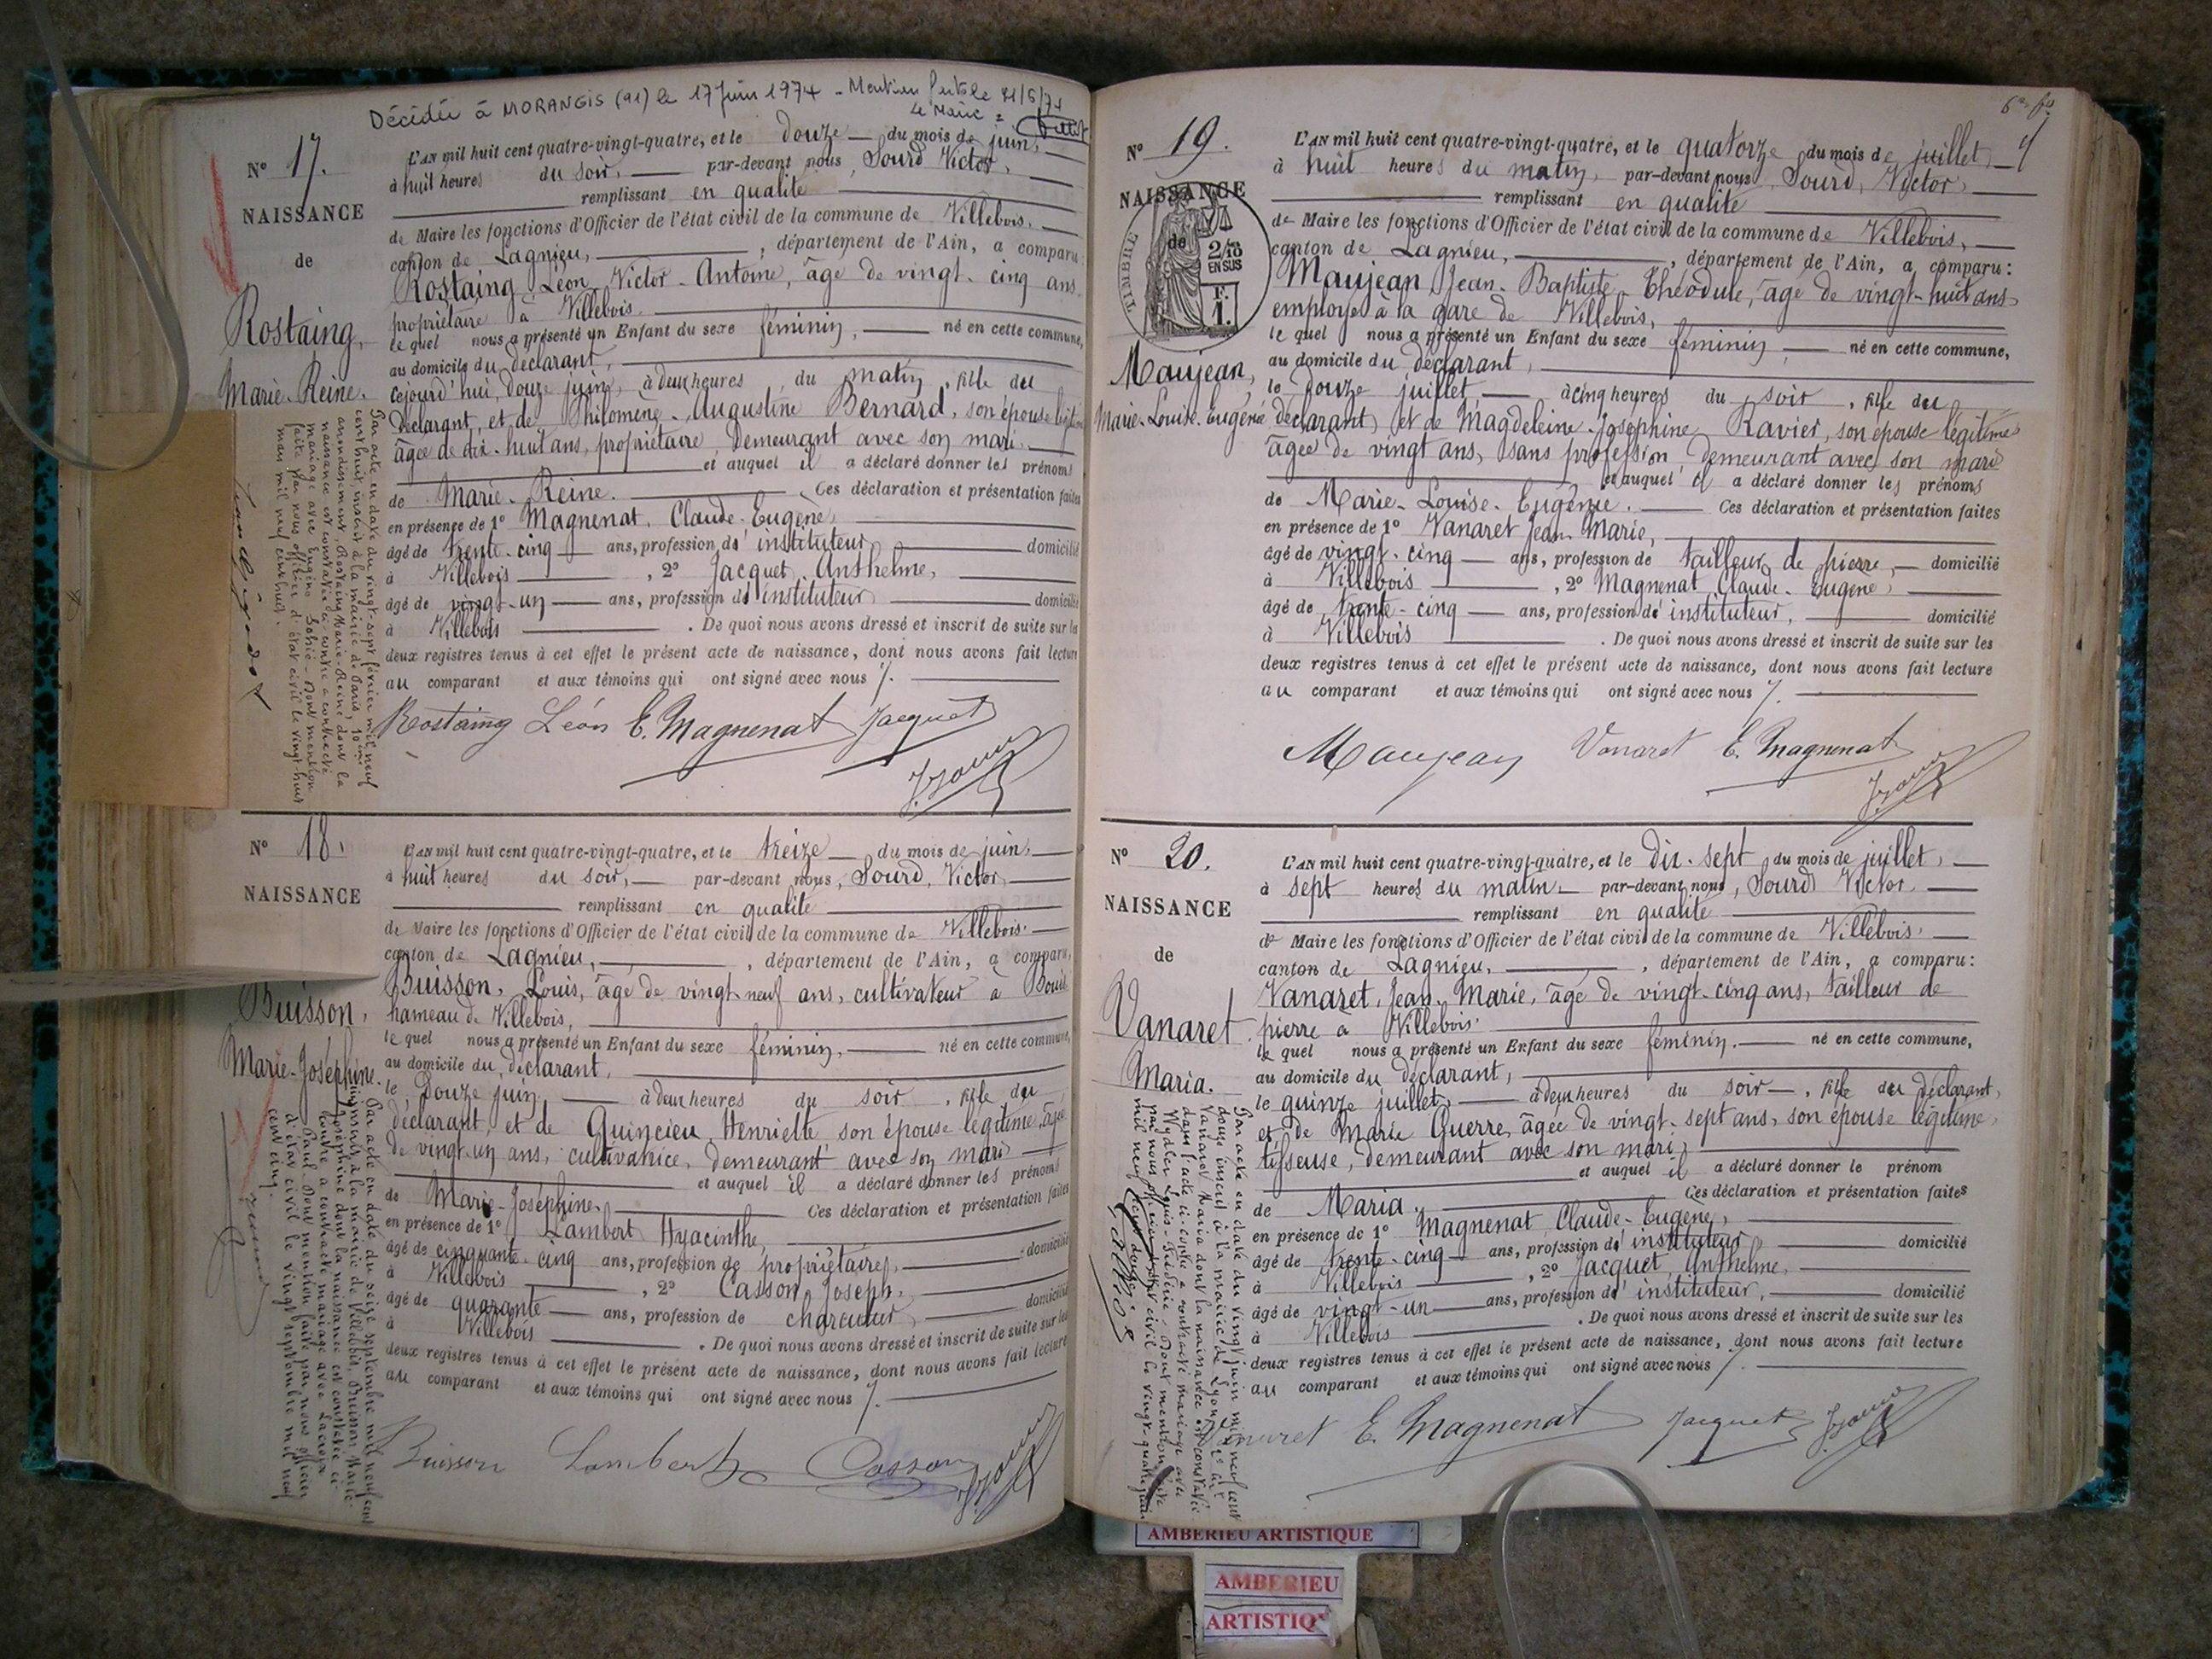 Décédée à MORANGIS (91) le 17 Juin 1974 - Mention faite le 21/6/74
Le Maire :
N° 17.
NAISSANCE
de
Rostaing,
Marie-Reine.
L'AN mil huit cent quatre-vingt-quatre, et le douze du mois de juin,
à huit heures du soir, par-devant nous, Sourd Victor,
remplissant en qualité
de Maire les fonctions d'Officier de l'état civil de la commune de Villebois,
canton de Lagnieu, , département de l'Ain, a comparu
Rostaing Léon-Victor-Antoine, âgé de vingt-cinq ans,
propriétaire à Villebois.
le quel nous a présenté un Enfant du sexe féminin, né en cette commune,
au domicile du déclarant,
cejourd'hui, douze juin, à deux heures du matin, fille du
déclarant, et de Philomène-Augustine Bernard, son épouse légitime
âgée de dix-huit ans, propriétaire, demeurant avec son mari,
et auquel il a déclaré donner les prénoms
de Marie-Reine. Ces déclaration et présentation faites
en présence de 1° Magnenat, Claude-Eugène,
âgé de trente-cinq ans, profession d'instituteur domicilié
à Villebois , 2° Jacquet, Anthelme,
âgé de vingt-un ans, profession d'instituteur domicilié
à Villebois . De quoi nous avons dressé et inscrit de suite sur les
deux registres tenus à cet effet le présent acte de naissance, dont nous avons fait lecture
au comparant et aux témoins qui ont signé avec nous
Rostaing Léon E. Magnenat Jacquet
Par acte en date du vingt-sept février mil neuf
cent huit, inscrit à la mairie de Paris, 10eme
arrondissement, Rostaing Marie-Reine dont la
naissance est constatée ci-contre a contracté
mariage avec Eugène Dont mention
faite par nous officier d'état civil le vingt-huit
mars mil neuf cent huit.
N° 18.
NAISSANCE
Buisson,
Marie-Joséphine.
L'AN mil huit cent quatre-vingt-quatre, et le treize du mois de juin,
à huit heures du soir, par-devant nous, Sourd, Victor,
remplissant en qualité
de Maire les fonctions d'Officier de l'état civil de la commune de Villebois,
canton de Lagnieu, , département de l'Ain, a comparu,
Buisson, Louis, âgé de vingt-neuf ans, cultivateur à Bouis
hameau de Villebois,
le quel nous a présenté un Enfant du sexe féminin, né en cette commune,
au domicile du déclarant,
le douze juin, à deux heures du soir, fille du
déclarant, et de Quincieu, Henriette son épouse légitime, âgée
de vingt-un ans, cultivatrice, demeurant avec son mari
et auquel il a déclaré donner les prénoms
de Marie-Joséphine. Ces déclaration et présentation faites
en présence de 1° Lambert Hyacinthe,
âgé de cinquante-cinq ans, profession de propriétaire, domicilié
à Villebois , 2° Casson, Joseph,
âgé de quarante ans, profession de charcutier domicilié
à Villebois . De quoi nous avons dressé et inscrit de suite sur les
deux registres tenus à cet effet le présent acte de naissance, dont nous avons fait lecture
au comparant et aux témoins qui ont signé avec nous
Buisson Lambert Casson
Par acte en date du seize septembre mil neuf cent
inscrit à la mairie de Villebois, Buisson Marie-
Joséphine dont la naissance est constatée ci-
contre a contracté mariage avec Lacroix
Paul. Dont mention faite par nous officier
d'état civil le vingt septembre mil neuf
cent cinq.
N° 19.
NAISSANCE
de
TIMBRE
2/10
EN SUS
F.
1.
Maujean,
Marie-Louise-Eugénie
L'AN mil huit cent quatre-vingt-quatre, et le quatorze du mois de juillet,
à huit heures du matin, par-devant nous, Sourd, Victor,
remplissant en qualité
de Maire les fonctions d'Officier de l'état civil de la commune de Villebois,
canton de Lagnieu, , département de l'Ain, a comparu:
Maujean, Jean-Baptiste-Théodule, âgé de vingt-huit ans,
employé à la gare de Villebois,
le quel nous a présenté un Enfant du sexe féminin, né en cette commune,
au domicile du déclarant,
le douze juillet, à cinq heures du soir, fille du
déclarant, et de Magdeleine-Joséphine Ravier, son épouse légitime
âgée de vingt ans, sans profession, demeurant avec son mari
et auquel il a déclaré donner les prénoms
de Marie-Louise-Eugénie. Ces déclaration et présentation faites
en présence de 1° Vanaret Jean-Marie,
âgé de vingt-cinq ans, profession de tailleur de pierre, domicilié
à Villebois , 2° Magnenat, Claude-Eugène,
âgé de trente-cinq ans, profession d'instituteur, domicilié
à Villebois . De quoi nous avons dressé et inscrit de suite sur les
deux registres tenus à cet effet le présent acte de naissance, dont nous avons fait lecture
au comparant et aux témoins qui ont signé avec nous
Maujean Vanaret E. Magnenat
N° 20.
NAISSANCE
de
Vanaret
Maria.
L'AN mil huit cent quatre-vingt-quatre, et le dix-sept du mois de juillet,
à sept heures du matin par-devant nous, Sourd Victor,
remplissant en qualité
de Maire les fonctions d'Officier de l'état civil de la commune de Villebois,
canton de Lagnieu, , département de l'Ain, a comparu:
Vanaret, Jean-Marie, âgé de vingt-cinq ans, tailleur de
pierre à Villebois.
le quel nous a présenté un Enfant du sexe féminin, né en cette commune,
au domicile du déclarant,
le quinze juillet, à deux heures du soir, fille du déclarant,
et de Marie Guerre, âgée de vingt-sept ans, son épouse légitime,
tisseuse, demeurant avec son mari,
et auquel il a déclaré donner le prénom
de Maria. Ces déclaration et présentation faites
en présence de 1° Magnenat, Claude-Eugène,
âgé de trente-cinq ans, profession d'instituteur domicilié
à Villebois , 2° Jacquet, Anthelme,
âgé de vingt-un ans, profession d'instituteur, domicilié
à Villebois . De quoi nous avons dressé et inscrit de suite sur les
deux registres tenus à cet effet le présent acte de naissance, dont nous avons fait lecture
au comparant et aux témoins qui ont signé avec nous
Vanaret E. Magnenat Jacquet
Par acte en date du vingt juin mil neuf cent
douze inscrit à la mairie de Lyon
Vanaret Maria dont la naissance est constatée
dans l'acte ci-contre a contracté mariage avec
Louis-Frédéric. Dont mention faite
par nous officier d'état civil le vingt-quatre juin
mil neuf cent douze.
AMBERIEU ARTISTIQUE
AMBERIEU
ARTISTIQ